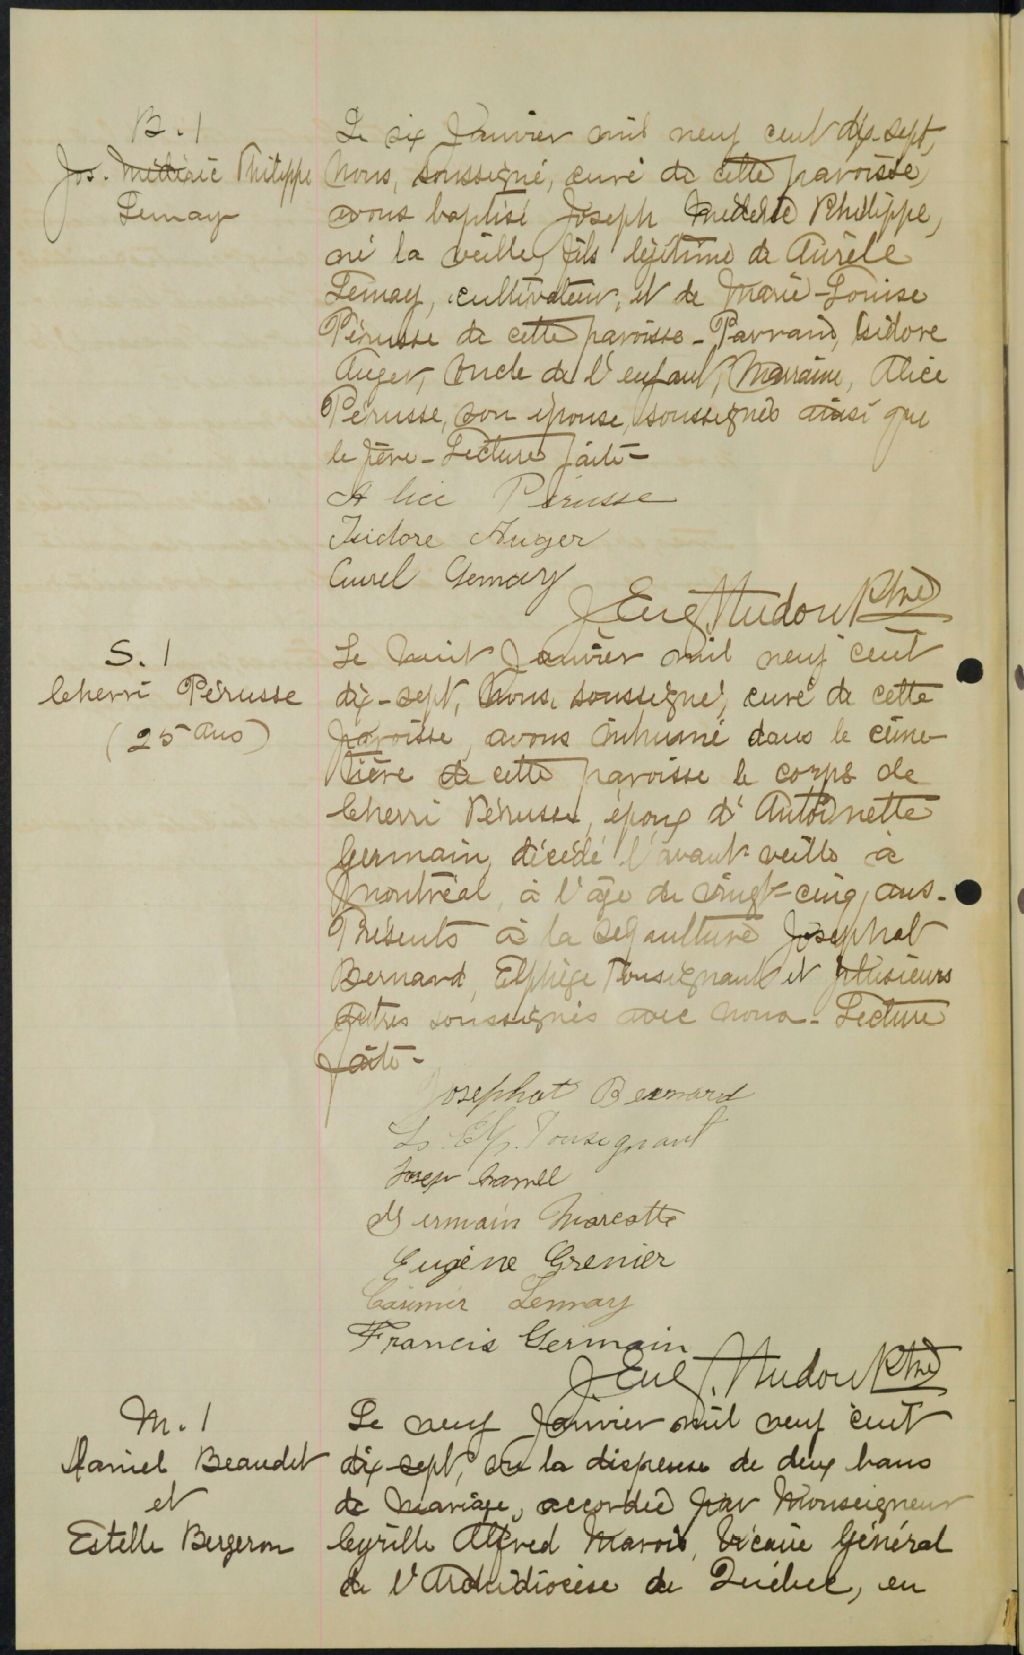 B. 1
Jos. Médéric Philippe
Lemay
Le six Janvier mil neuf cent dix-sept,
Nous, soussigné, curé de cette paroisse,
avons baptisé Joseph Médéric Philippe,
né la veille, fils légitime de Aurèle
Lemay, cultivateur, et de Marie-Louise
Pérusse de cette paroisse - Parrain, Isidore
Auger, Oncle de l'enfant, Marraine, Alice
Pérusse, son épouse, soussignés ainsi que
le père - Lecture faite -
Alice Pérusse
Isidore Auger
Aurel Lemay
J. Eug. Nudon Ptre
S. 1
Cherri Pérusse
(25 ans)
Le huit Janvier mil neuf cent
dix-sept, Nous, soussigné, curé de cette
paroisse, avons inhumé dans le cime-
tière de cette paroisse le corps de
Cherri Pérusse, époux d'Antoinette
Germain, décédé l'avant-veille à
Montréal, à l'âge de vingt-cinq ans -
Présents à la sépulture Josephat
Bernard, Elphège Tousignant et plusieurs
autres soussignés avec nous - Lecture
faite -
Josephat Bernard
Ls. Elp. Tousignant
Josep Hamel
Germain Marcotte
Eugène Grenier
Casimir Lemay
Francis Germain
J. Eug. Nudon Ptre
M. 1
Daniel Beaudet
et
Estelle Bergeron
Le neuf Janvier mil neuf cent
dix-sept, vu la dispense de deux bans
de mariage, accordée par Monseigneur
Cyrille Alfred Marois, Vicaire Général
de l'Archidiocèse de Québec, en